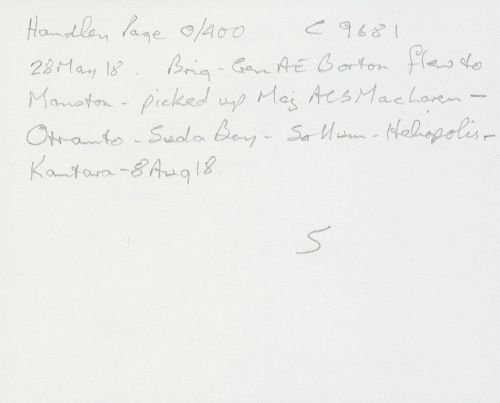 Handley Page O/400 C 9681
28 May 18. Brig-Gen AE Borton flew to
Manston - picked up Maj. ACS MacLaren -
Otranto - Suda Bay - Sollum - Heliopolis -
Kantara - 8 Aug 18.
5